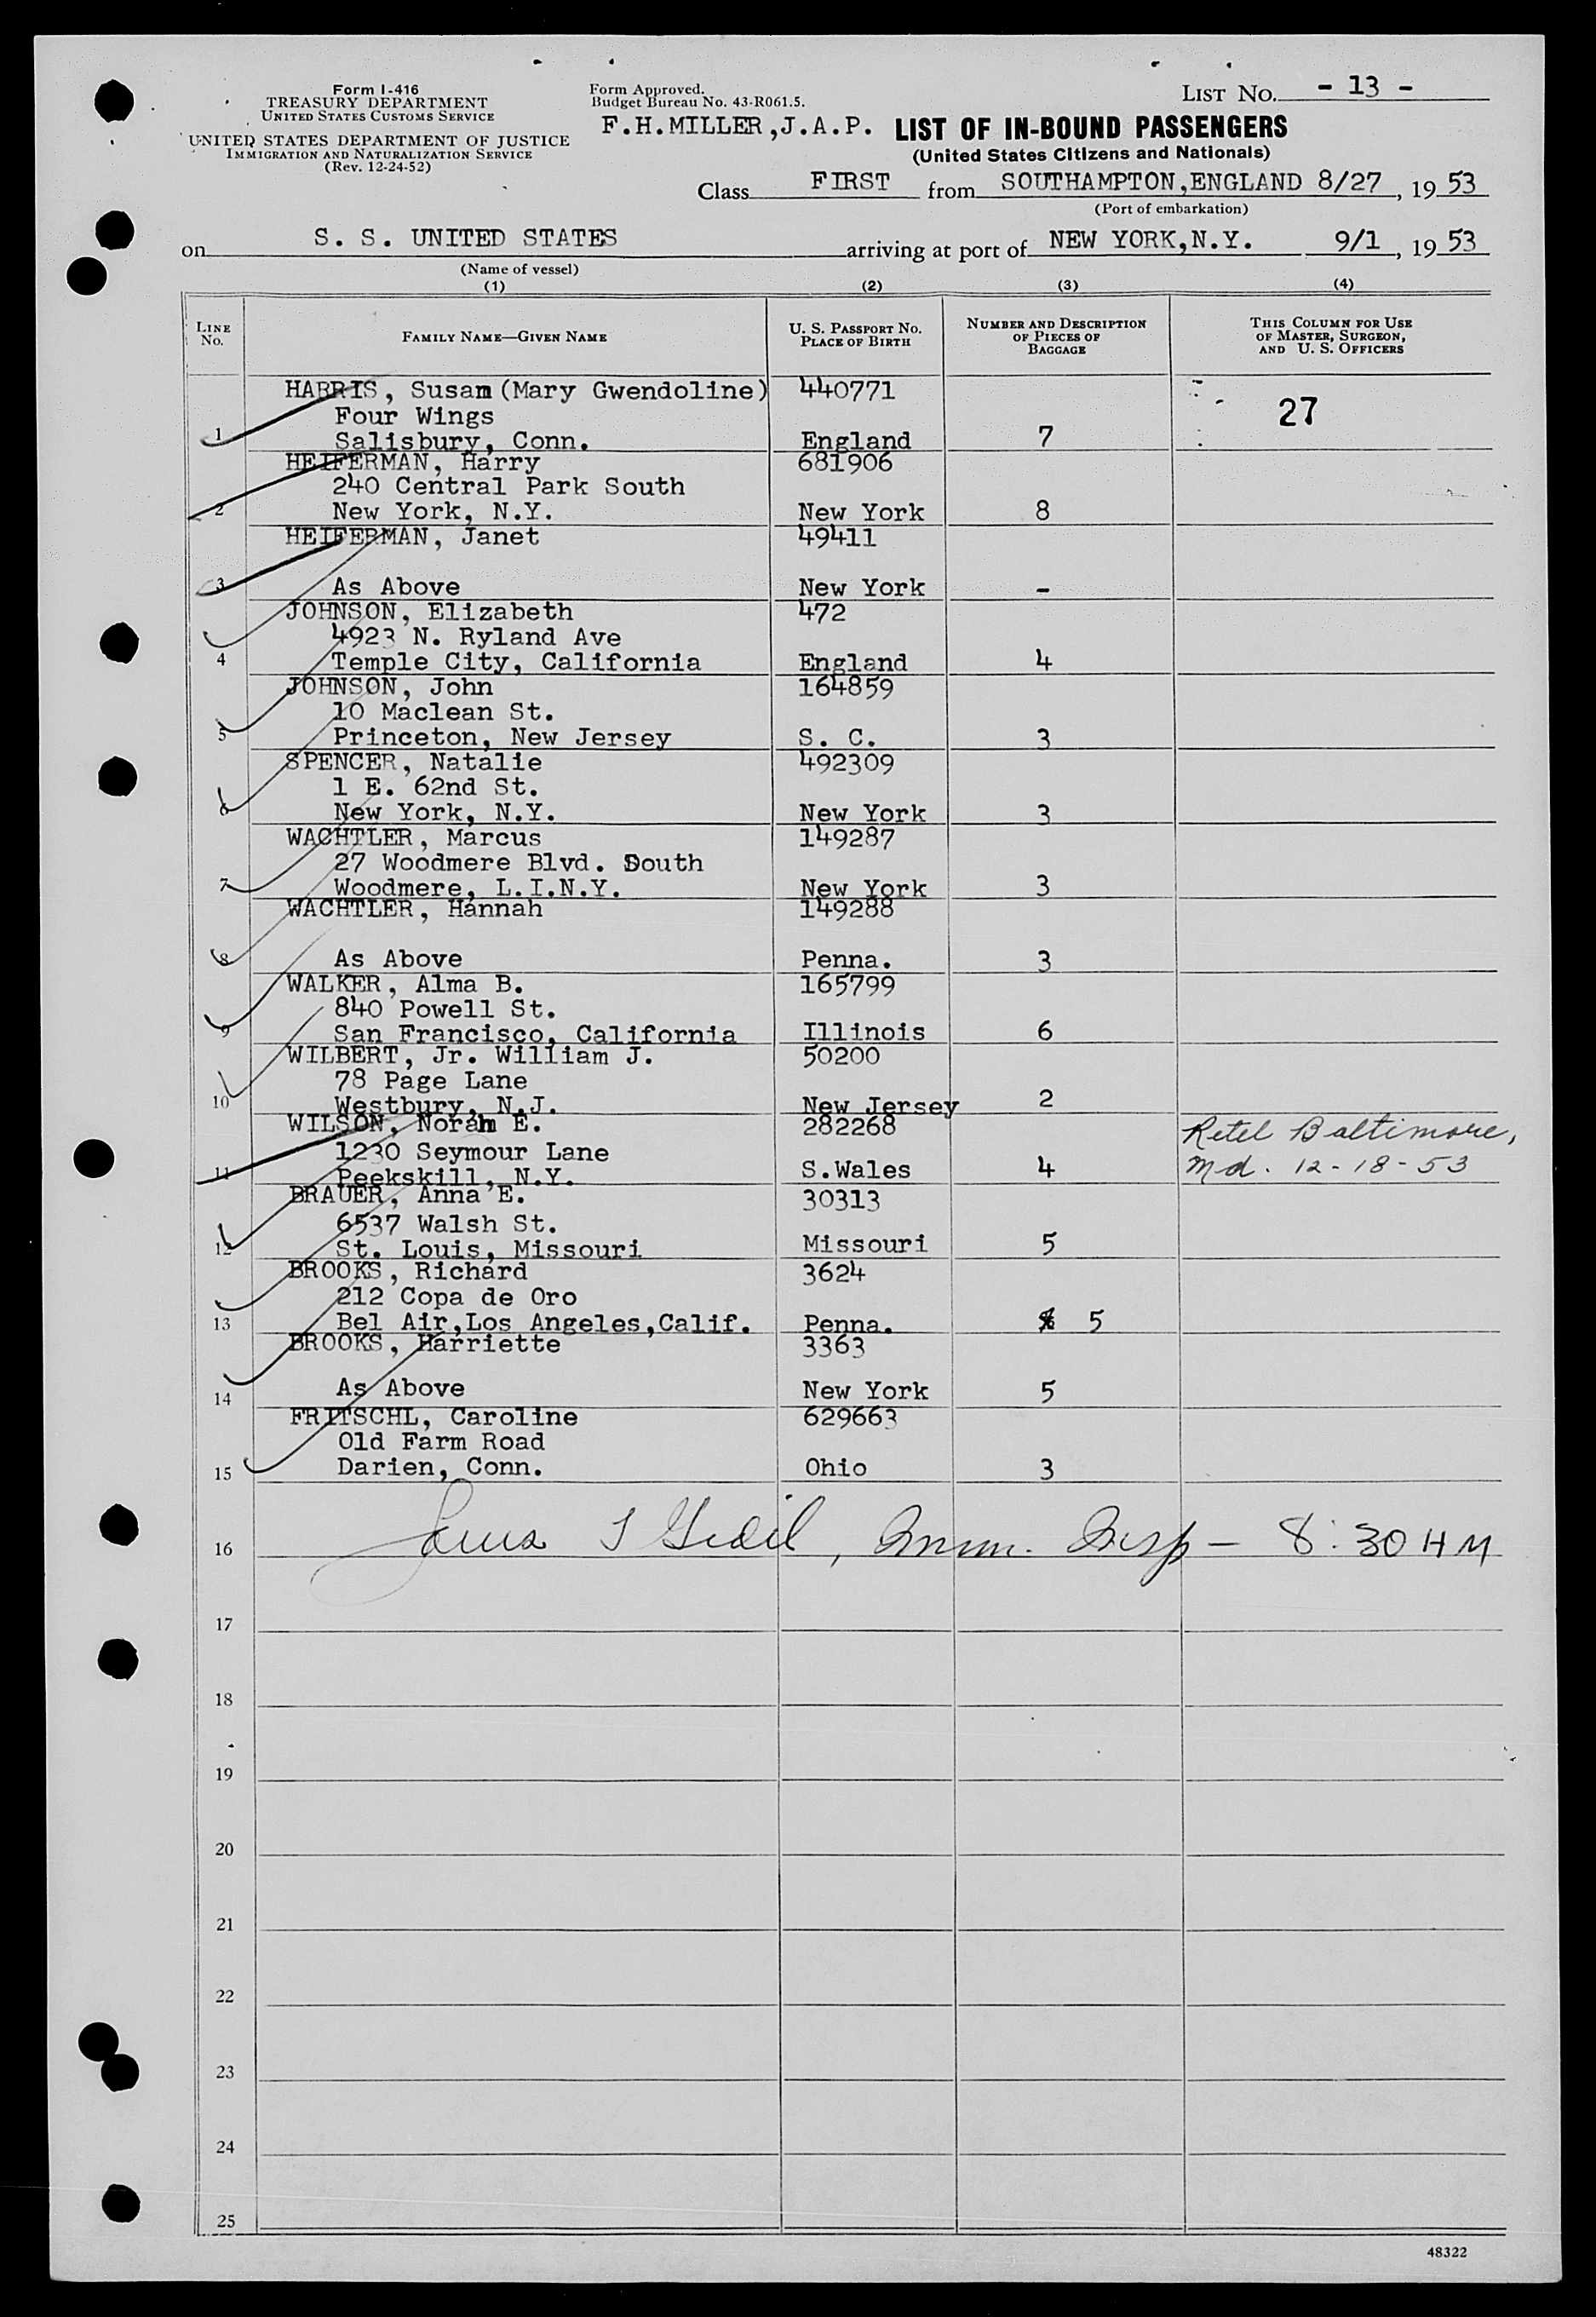 Form I-416
TREASURY DEPARTMENT
UNITED STATES CUSTOMS SERVICE
UNITED STATES DEPARTMENT OF JUSTICE
IMMIGRATION AND NATURALIZATION SERVICE
(Rev. 12-24-52)
Form Approved.
Budget Bureau No. 43-R061.5.
LIST No. - 13 -
F.H.MILLER,J.A.P. LIST OF IN-BOUND PASSENGERS
(United States Citizens and Nationals)
Class FIRST from SOUTHAMPTON,ENGLAND 8/27, 1953
(Port of embarkation)
on S. S. UNITED STATES arriving at port of NEW YORK,N.Y. 9/1, 1953
(Name of vessel)
(1) (2) (3) (4)
LINE No. FAMILY NAME—GIVEN NAME U. S. PASSPORT No. PLACE OF BIRTH NUMBER AND DESCRIPTION OF PIECES OF BAGGAGE THIS COLUMN FOR USE OF MASTER, SURGEON, AND U. S. OFFICERS
HARRIS, Susan (Mary Gwendoline) 440771
Four Wings 27
1 Salisbury, Conn. England 7
HEIFERMAN, Harry 681906
240 Central Park South
2 New York, N.Y. New York 8
HEIFERMAN, Janet 49411
3 As Above New York -
JOHNSON, Elizabeth 472
4923 N. Ryland Ave
4 Temple City, California England 4
JOHNSON, John 164859
10 Maclean St.
5 Princeton, New Jersey S. C. 3
SPENCER, Natalie 492309
1 E. 62nd St.
6 New York, N.Y. New York 3
WACHTLER, Marcus 149287
27 Woodmere Blvd. South
7 Woodmere, L.I.N.Y. New York 3
WACHTLER, Hannah 149288
8 As Above Penna. 3
WALKER, Alma B. 165799
840 Powell St.
9 San Francisco, California Illinois 6
WILBERT, Jr. William J. 50200
78 Page Lane
10 Westbury, N.J. New Jersey 2
WILSON, Norah E. 282268 Retel Baltimore,
1230 Seymour Lane
11 Peekskill, N.Y. S.Wales 4 Md. 12-18-53
BRAUER, Anna E. 30313
6537 Walsh St.
12 St. Louis, Missouri Missouri 5
BROOKS, Richard 3624
212 Copa de Oro
13 Bel Air,Los Angeles,Calif. Penna. 5
BROOKS, Harriette 3363
14 As Above New York 5
FRITSCHL, Caroline 629663
Old Farm Road
15 Darien, Conn. Ohio 3
16 Imm. Insp - 8:30 AM
17
18
19
20
21
22
23
24
25
48322